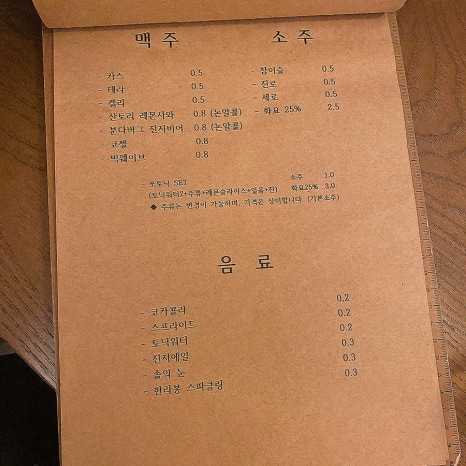 맥 주
- 카스 0.5
- 테라 - 0.5
- 켈리 0.5
- 산토리 레몬사와 0.8 (논알콜)
- 분다버그 진저비어 0.8 (논알콜)
- 코젤 0.8
- 빅웨이브 0.8
소 주
- 참이슬 0.5
- 진로 0.5
- 새로 0.5
- 화요 25% 2.5
- 쏘토닉 SET 소주 1.0
(토닉워터2+주류+레몬슬라이스+얼음+잔) 화요25% 3.0
◆ 주류는 변경이 가능하며, 가격은 상이합니다. (기본소주)
음 료
- 코카콜라 0.2
- 스프라이트 0.2
- 토닉워터 0.2
- 진저에일 0.3
- 솔의 눈 0.3
- 한라봉 스파클링 0.3